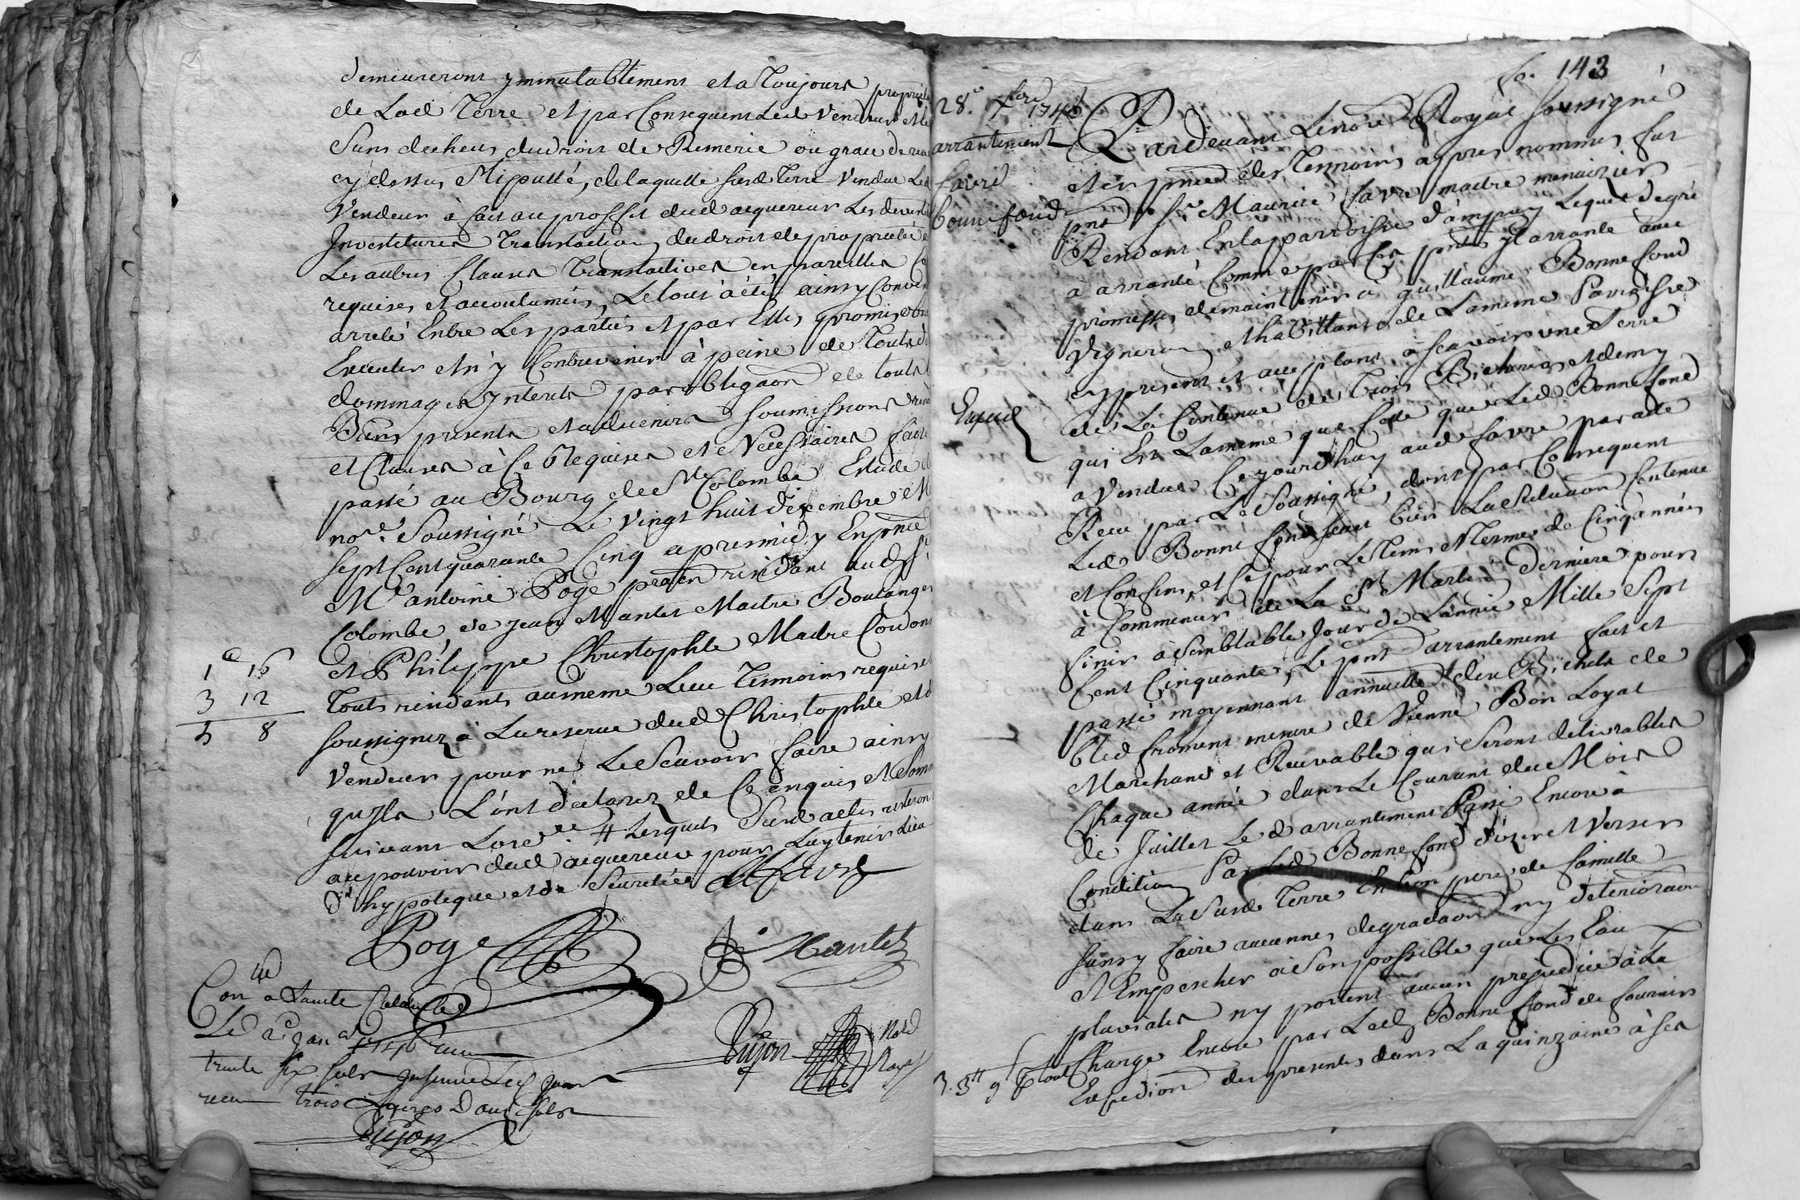 demeureront ymmutablement et a Toujours propriete
de Lad Terre et par Consequent Led Vendeur
Sans decheus dudroit de Remerié ou grace de
cydessus stipullé, de laquelle susd Terre Vendue Led
Vendeur à fait au proffit dud acquereur Les devest
Investitures Translation dudroit de proprieté
Les autres Clauses Translatives en pareilles
requises et accoutumées, Le tout à été ainsy Conven
arreté Entre Les parties et par Elles promis
Executer et n'y Contrevenir à peine de Touts d
dommages Interets par obligaon de touts
Biens presents et advenirs soumissions
et Clauses à Ce Requises et Necessaires fait
passé au Bourg de Ste Colombe Etude d
nore Soussigné Le Vingt huit decembre M
sept Cent quarante Cinq apresmidy En pnce
Me antoine Poge praten resident aud St
Colombe de jean Nantet Maitre Boulanger
et Philippe Christophle Maitre Cordon
Touts residents aumeme Lieu Temoins requis
soussignez à La reserve dud Christophle et d
Vendeur pour ne Le Scavoir faire ainsy
qu'ils L'ont declarez de Ce enquis et Somm
suivant Lord ce # Lesquels Susd actes resteront
au pouvoir dud acquereur pour Luy tenir Lieu
d'hypoteque et de Seuretée
MFavre
1 a 16
3 12
5 8
Poge
Nantet
Con lé a Sainte Colombe
Le 2e janer 1746
trente six sols
recu trois Livres Douze sols
Dujon
Dujon
Nore
Royal
fo. 143
28e Xbre 1745
arrantement
favre
bonnefond
Expedé
Pardevant Lenore Royal soussigné
et en pnce des Temoins apres nommes fut
pnt Sr Maurice favre maitre menuizier
Residant En la parroisse d'ampuy Lequel de gré
à arranté Comme par Ces pntes Il arrante avec
promesse de maintenir à guillaume Bonnefond
Vigneron et habittant de La meme Parroisse
cy present et acceptant à Scavoir une Terre
de La Contenue de Trois Bicherées et demy
qui Est La meme que Celle que Led Bonnefond
a Vendue Cejourd'huy aud favre par acte
Receu par Le Soussigné, dont par Consequent
Led Bonnefond scait bien La Situaon Contenue
et Confins, et Ce pour Le Tems et Terme de Cinq années
à Commencer de La St Martin derniere pour
finir à semblable Jour de Lannée Mille Sept
Cent Cinquante, Le pnt arrantement fait et
passé moyennant annuellemt dix Bichets de
bled froment mesure de Vienne Bon Loyal
Marchand et Recevable qui Seront delivrables
Chaque année dans Le Courant du Mois
de Juillet Led arrantement Passé Encore à
Condition Par Led Bonnefond d'user et Verser
dans La Susd Terre En bon pere de famille
sans y faire aucunes degradaons ny deterioraon
et Empescher à Son possible que Les Eaux
pluviales n'y portent aucun prejudice à La
Charge Encore par Led Bonnefond de fournir
Expedion des presentes dans La quinzaine à Ses